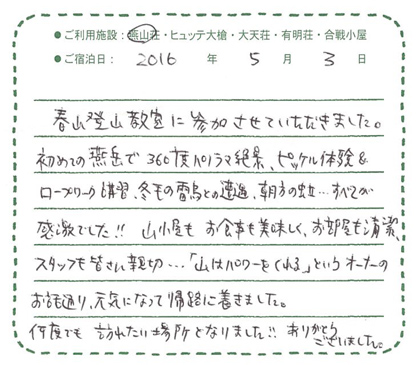 ●ご利用施設：燕山荘・ヒュッテ大槍・大天荘・有明荘・合戦小屋
●ご宿泊日： 2016 年 5 月 3 日
春山登山教室に参加させていただきました。
初めての燕岳で360度パノラマ絶景、ピッケル体験&
ロープワーク講習、冬毛の雷鳥との遭遇、朝方の虹…すべてが
感激でした!! 山小屋も お食事も美味しく、お部屋も清潔、
スタッフも皆さん親切…「山はパワーをくれる」というオーナーの
お話通り、元気になって帰路に着きました。
何度でも 訪れたい場所となりました!! ありがとう
ございました。